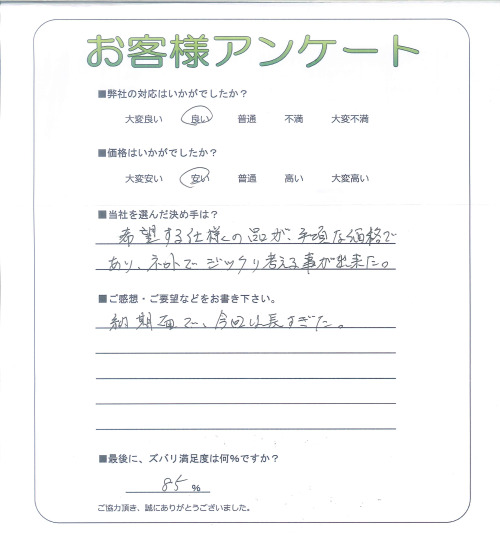 お客様アンケート
■弊社の対応はいかがでしたか？
大変良い 良い 普通 不満 大変不満
■価格はいかがでしたか？
大変安い 安い 普通 高い 大変高い
■当社を選んだ決め手は？
希望する仕様の品が、手頃な価格で
あり、ネットでジックリ考える事が出来た。
■ご感想・ご要望などをお書き下さい。
納期面で、今回は長すぎた。
■最後に、ズバリ満足度は何%ですか？
85 %
ご協力頂き、誠にありがとうございました。